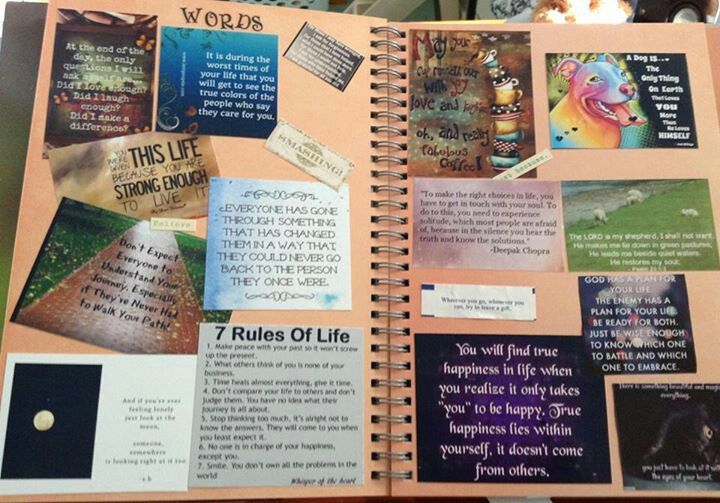 WORDS
At the end of the
day, the only
questions I will
ask myself are...
Did I love enough?
Did I laugh
enough?
Did I make a
difference?
It is during the
worst times of
your life that you
will get to see the
true colors of the
people who say
they care for you.
SMASHING!
YOU
WERE
GIVEN
THIS LIFE
BECAUSE YOU ARE
STRONG ENOUGH
TO LIVE IT
Believe
EVERYONE HAS GONE
THROUGH SOMETHING
THAT HAS CHANGED
THEM IN A WAY THAT
THEY COULD NEVER GO
BACK TO THE PERSON
THEY ONCE WERE.
Don't Expect
Everyone to
Understand Your
Journey, Especially
if They've Never Had
to Walk Your Path!
And if you're ever
feeling lonely
just look at the
moon,
someone,
somewhere
is looking right at it too
7 Rules Of Life
1. Make peace with your past so it won't screw
up the present.
2. What others think of you is none of your
business.
3. Time heals almost everything, give it time.
4. Don't compare your life to others and don't
judge them. You have no idea what their
journey is all about.
5. Stop thinking too much. It's alright not to
know the answers. They will come to you when
you least expect it.
6. No one is in charge of your happiness,
except you.
7. Smile. You don't own all the problems in the
world
Whisper of the heart
May your
cup runneth over
with joy
love and laughter
oh, and really
fabulous
Coffee!
A DOG IS...
The
Only Thing
On Earth
That Loves
YOU
More
Than
He Loves
HIMSELF
just because.
"To make the right choices in life, you
have to get in touch with your soul. To
do to this, you need to experience
solitude, which most people are afraid
of, because in the silence you hear the
truth and know the solutions."
-Deepak Chopra
The LORD is my shepherd, I shall not want.
He makes me lie down in green pastures,
He leads me beside quiet waters.
He restores my soul.
Wherever you go, whenever you
can, try to leave a gift.
GOD HAS A PLAN FOR
YOUR LIFE.
THE ENEMY HAS A
PLAN FOR YOUR LIFE.
BE READY FOR BOTH.
JUST BE WISE ENOUGH
TO KNOW WHICH ONE
TO BATTLE AND WHICH
ONE TO EMBRACE.
You will find true
happiness in life when
you realize it only takes
"you" to be happy. True
happiness lies within
yourself, it doesn't come
from others.
There is something beautiful and
everything,
you just have to look at it
the eyes of your heart